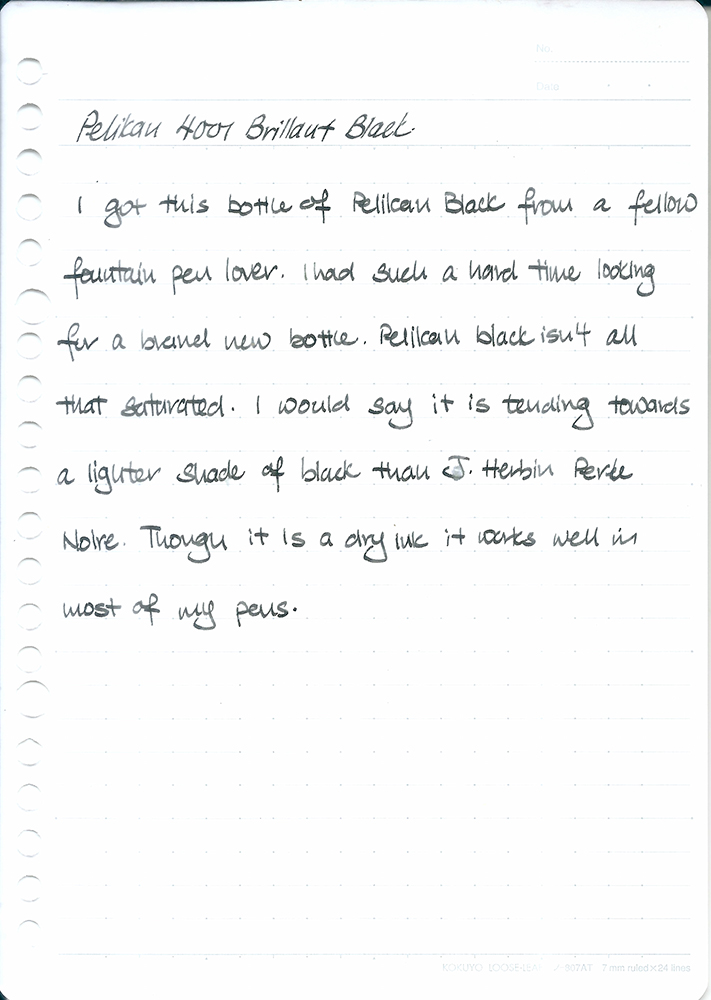 No.
Date
Pelikan 4001 Brillant Black.
I got this bottle of Pelikan Black from a fellow
fountain pen lover. I had such a hard time looking
for a brand new bottle. Pelikan black isn't all
that saturated. I would say it is tending towards
a lighter shade of black than J. Herbin Perle
Noire. Though it is a dry ink it works well in
most of my pens.
KOKUYO LOOSE-LEAF 7 mm ruled×24 lines